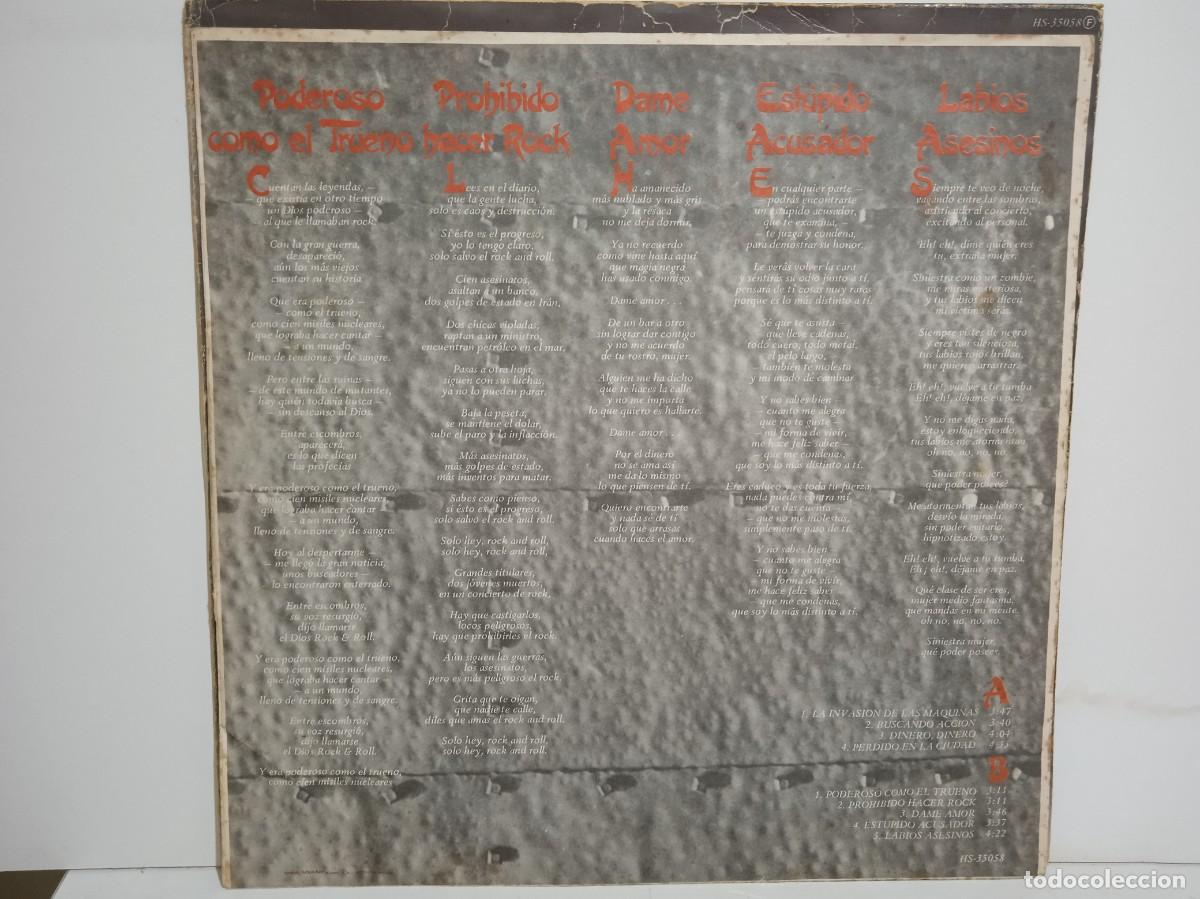 HS-35058 F
Poderoso
como el Trueno
Cuentan las leyendas, —
— que existía en otro tiempo
un Dios poderoso —
al que le llamaban rock.
Con la gran guerra,
desapareció,
aún los más viejos
cuentan su historia
Que era poderoso —
— como el trueno,
como cien misiles nucleares,
que lograba hacer cantar —
— a un mundo,
lleno de tensiones y de sangre.
Pero entre las ruinas —
— de este mundo de mutantes,
hay quién todavía busca —
— sin descanso al Dios.
Entre escombros,
aparecerá,
es lo que dicen
las profecías
Y era poderoso como el trueno,
como cien misiles nucleares
que lograba hacer cantar
— a un mundo,
lleno de tensiones y de sangre.
Hoy al despertarme —
— me llegó la gran noticia,
unos buscadores —
lo encontraron enterrado.
Entre escombros,
su voz resurgió,
dijo llamarse
el Dios Rock & Roll.
Y era poderoso como el trueno,
como cien misiles nucleares,
que lograba hacer cantar —
— a un mundo,
lleno de tensiones y de sangre.
Entre escombros,
su voz resurgió,
dijo llamarse
el Dios Rock & Roll.
Y era poderoso como el trueno,
como cien misiles nucleares
Prohibido
hacer Rock
Lees en el diario,
que la gente lucha,
solo es caos y destrucción.
Si ésto es el progreso,
yo lo tengo claro,
solo salvo el rock and roll.
Cien asesinatos,
asaltan a un banco,
dos golpes de estado en Irán,
Dos chicas violadas,
raptan a un ministro,
encuentran petróleo en el mar.
Pasas a otra hoja,
siguen con sus luchas,
ya no lo pueden parar.
Baja la peseta,
se mantiene el dolar,
sube el paro y la inflacción.
Más asesinatos,
más golpes de estado,
más inventos para matar.
Sabes como pienso,
si ésto es el progreso,
solo salvo el rock and roll.
Solo hey, rock and roll,
solo hey, rock and roll,
Grandes titulares,
dos jóvenes muertos,
en un concierto de rock,
Hay que castigarlos,
locos peligrosos,
hay que prohibirles el rock.
Aún siguen las guerras,
los asesinatos,
pero es más peligroso el rock.
Grita que te oigan,
que nadie te calle,
diles que amas el rock and roll.
Solo hey, rock and roll,
solo hey, rock and roll.
Dame
Amor
Ha amanecido
más nublado y más gris
y la resaca
no me deja dormir,
Ya no recuerdo
como vine hasta aquí
que magia negra
has usado conmigo.
Dame amor . . .
De un bar a otro
sin lograr dar contigo
y no me acuerdo
de tu rostro, mujer.
Alguien me ha dicho
que te haces la calle
y no me importa
lo que quiero es hallarte.
Dame amor . . .
Por el dinero
no se ama así
me da lo mismo
lo que piensen de tí.
Quiero encontrarte
y nada sé de tí
solo que arrasas
cuando haces el amor.
Estúpido
Acusador
En cualquier parte —
— podrás encontrarte
un estúpido acusador,
que te examina,
— te juzga y condena,
para demostrar su honor.
Le verás volver la cara
y sentirás su odio junto a tí.
pensará de tí cosas muy raras
porque es lo más distinto a tí.
Sé que te asusta —
— que lleve cadenas,
todo cuero, todo metal,
el pelo largo,
— también te molesta
y mi modo de caminar
Y no sabes bien —
— cuanto me alegra
que no te guste —
— mi forma de vivir,
me hace feliz saber —
— que me condenas,
que soy lo más distinto a tí.
Eres caduco y es toda tu fuerza,
nada puedes contra mí,
no te das cuenta —
— que no me molestas,
simplemente paso de tí.
Y no sabes bien —
— cuanto me alegra
que no te guste —
mi forma de vivir,
me hace feliz saber —
que me condenas,
que soy lo más distinto a tí.
Labios
Asesinos
Siempre te veo de noche,
vagando entre las sombras,
asistiendo al concierto,
excitando al personal.
Eh! eh!, dime quién eres
tu, extraña mujer.
Siniestra como un zombie,
me miras misteriosa,
y tus labios me dicen
mi víctima serás.
Siempre vistes de negro
y eres tan silenciosa,
tus labios rojos brillan,
me quieren arrastrar.
Eh! eh!, vuelve a tu tumba
Eh! eh!, déjame en paz.
Y no me digas nada,
estoy enloqueciendo,
tus labios me atormentan
oh no, no, no, no.
Siniestra mujer,
que poder posees?
Me atormentan tus labios,
desvío la mirada,
sin poder evitarlo,
hipnotizado estoy.
Eh! eh!, vuelve a tu tumba,
Eh ¡ eh!, déjame en paz.
Qué clase de ser eres,
mujer medio fantasma,
que mandas en mi mente
oh no, no, no, no.
Siniestra mujer,
qué poder posees.
A
1. LA INVASION DE LAS MAQUINAS 3:47
2. BUSCANDO ACCION 3:40
3. DINERO, DINERO 4:04
4. PERDIDO EN LA CIUDAD 4:33
B
1. PODEROSO COMO EL TRUENO 3:11
2. PROHIBIDO HACER ROCK 3:11
3. DAME AMOR 3:46
4. ESTUPIDO ACUSADOR 3:37
5. LABIOS ASESINOS 4:22
HS-35058
todocoleccion